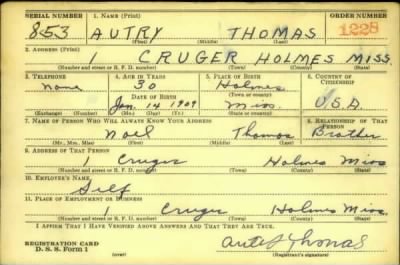 SERIAL NUMBER 1. NAME (Print) ORDER NUMBER
853 AUTRY THOMAS 1228
(First) (Middle) (Last)
2. ADDRESS (Print)
1 CRUGER HOLMES MISS.
(Number and street or R. F. D. number) (Town) (County) (State)
3. TELEPHONE 4. AGE IN YEARS 5. PLACE OF BIRTH 6. COUNTRY OF CITIZENSHIP
none 30 Holmes
DATE OF BIRTH (Town or county)
Jan. 14 1909 Miss. U.S.A.
(Exchange) (Number) (Mo.) (Day) (Yr.) (State or country)
7. NAME OF PERSON WHO WILL ALWAYS KNOW YOUR ADDRESS 8. RELATIONSHIP OF THAT PERSON
Noel Thomas Brother
(Mr., Mrs., Miss) (First) (Middle) (Last)
9. ADDRESS OF THAT PERSON
1 Cruger Holmes Miss
(Number and street or R. F. D. number) (Town) (County) (State)
10. EMPLOYER'S NAME
Self
11. PLACE OF EMPLOYMENT OR BUSINESS
1 Cruger Holmes Miss.
(Number and street or R. F. D. number) (Town) (County) (State)
I AFFIRM THAT I HAVE VERIFIED ABOVE ANSWERS AND THAT THEY ARE TRUE.
REGISTRATION CARD
D. S. S. Form 1 (over) Thomas
(Registrant's signature)